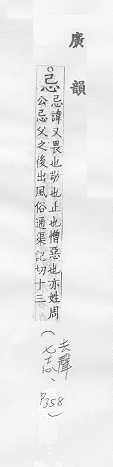 廣韻
忌
忌諱又畏也敬也止也憎惡也亦姓周
公忌父之後出風俗通渠記切十三
(去聲
七志
P358)